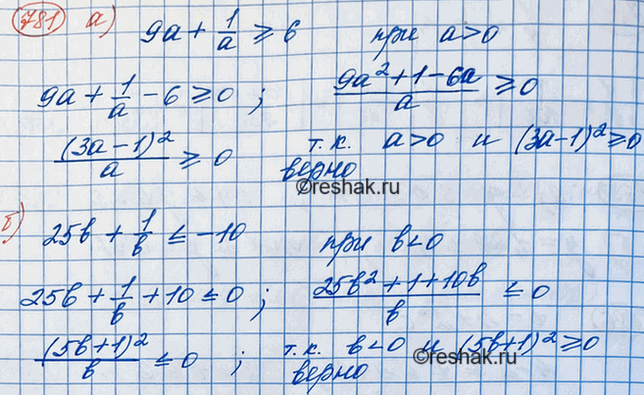 781 а) 9a + 1/a ⩾ 6 при a > 0
9a + 1/a - 6 ⩾ 0 ; (9a² + 1 - 6a)/a ⩾ 0
(3a - 1)²/a ⩾ 0 т.к. a > 0 и (3a - 1)² ⩾ 0
верно
©reshak.ru
б) 25b + 1/b ≤ -10 при b < 0
25b + 1/b + 10 ≤ 0 ; (25b² + 1 + 10b)/b ≤ 0
(5b + 1)²/b ≤ 0 ; т.к. b < 0 и (5b + 1)² ⩾ 0
верно
©reshak.ru